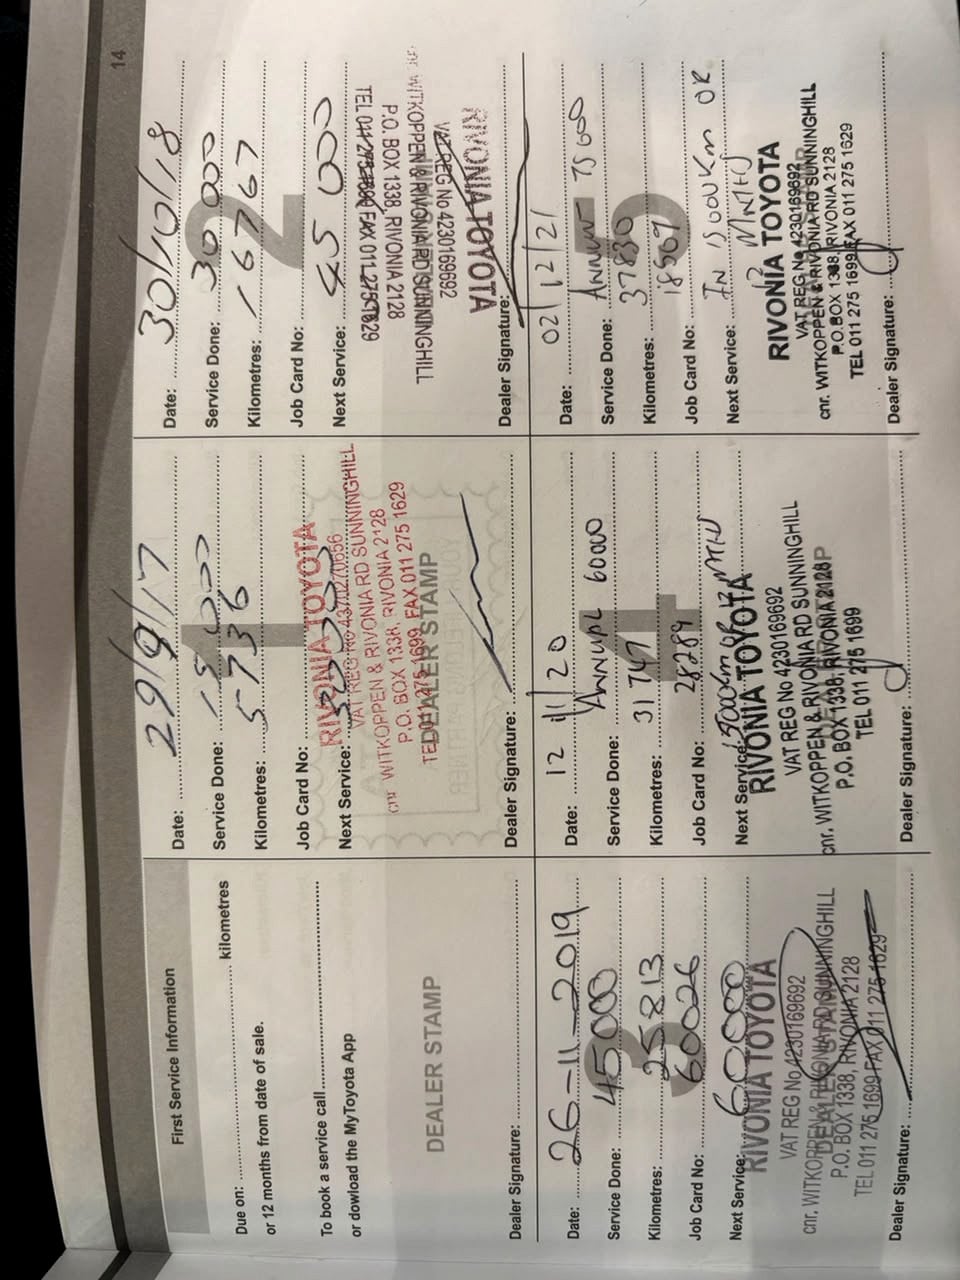 14
First Service Information
Due on: kilometres
or 12 months from date of sale.
To book a service call
or dowload the MyToyota App
DEALER STAMP
Dealer Signature:
1
Date: 29/9/17
Service Done: 15 000
Kilometres: 5736
Job Card No:
Next Service:
RIVONIA TOYOTA
VAT REG No 4370270656
cnr WITKOPPEN & RIVONIA RD SUNNINGHILL
P.O. BOX 1338, RIVONIA 2128
TEL 011 275 1699, FAX 011 275 1629
DEALER STAMP
Dealer Signature:
2
Date: 30/10/18
Service Done: 30 000
Kilometres: 16767
Job Card No:
Next Service: 45 000
RIVONIA TOYOTA
VAT REG No 4230169692
WITKOPPEN & RIVONIA RD SUNNINGHILL
P.O. BOX 1338, RIVONIA 2128
TEL 011 FAX 011 275 1629
Dealer Signature:
3
Date: 26-11-2019
Service Done: 45000
Kilometres: 25813
Job Card No: 60026
Next Service: 60000
RIVONIA TOYOTA
VAT REG No 4230169692
cnr. WITKOPPEN & RIVONIA RD SUNNINGHILL
P.O. BOX 1338, RIVONIA 2128
TEL 011 275 1699 FAX 011 275 1629
Dealer Signature:
4
Date: 12 /11/ 20
Service Done: Annual 60000
Kilometres: 31747
Job Card No: 28289
Next Service: 15000km or 12 MTN
RIVONIA TOYOTA
VAT REG No 4230169692
cnr. WITKOPPEN & RIVONIA RD SUNNINGHILL
P.O. BOX 1338, RIVONIA 2128
TEL 011 275 1699
Dealer Signature:
5
Date: 02/12/21
Service Done: Annual 75 000
Kilometres: 37830
Job Card No: 18567
Next Service: IN 15000Km OR
12 MNTHS
RIVONIA TOYOTA
VAT REG No 4230169692
cnr. WITKOPPEN & RIVONIA RD SUNNINGHILL
P.O.BOX 1338, RIVONIA 2128
TEL 011 275 1699 FAX 011 275 1629
Dealer Signature: